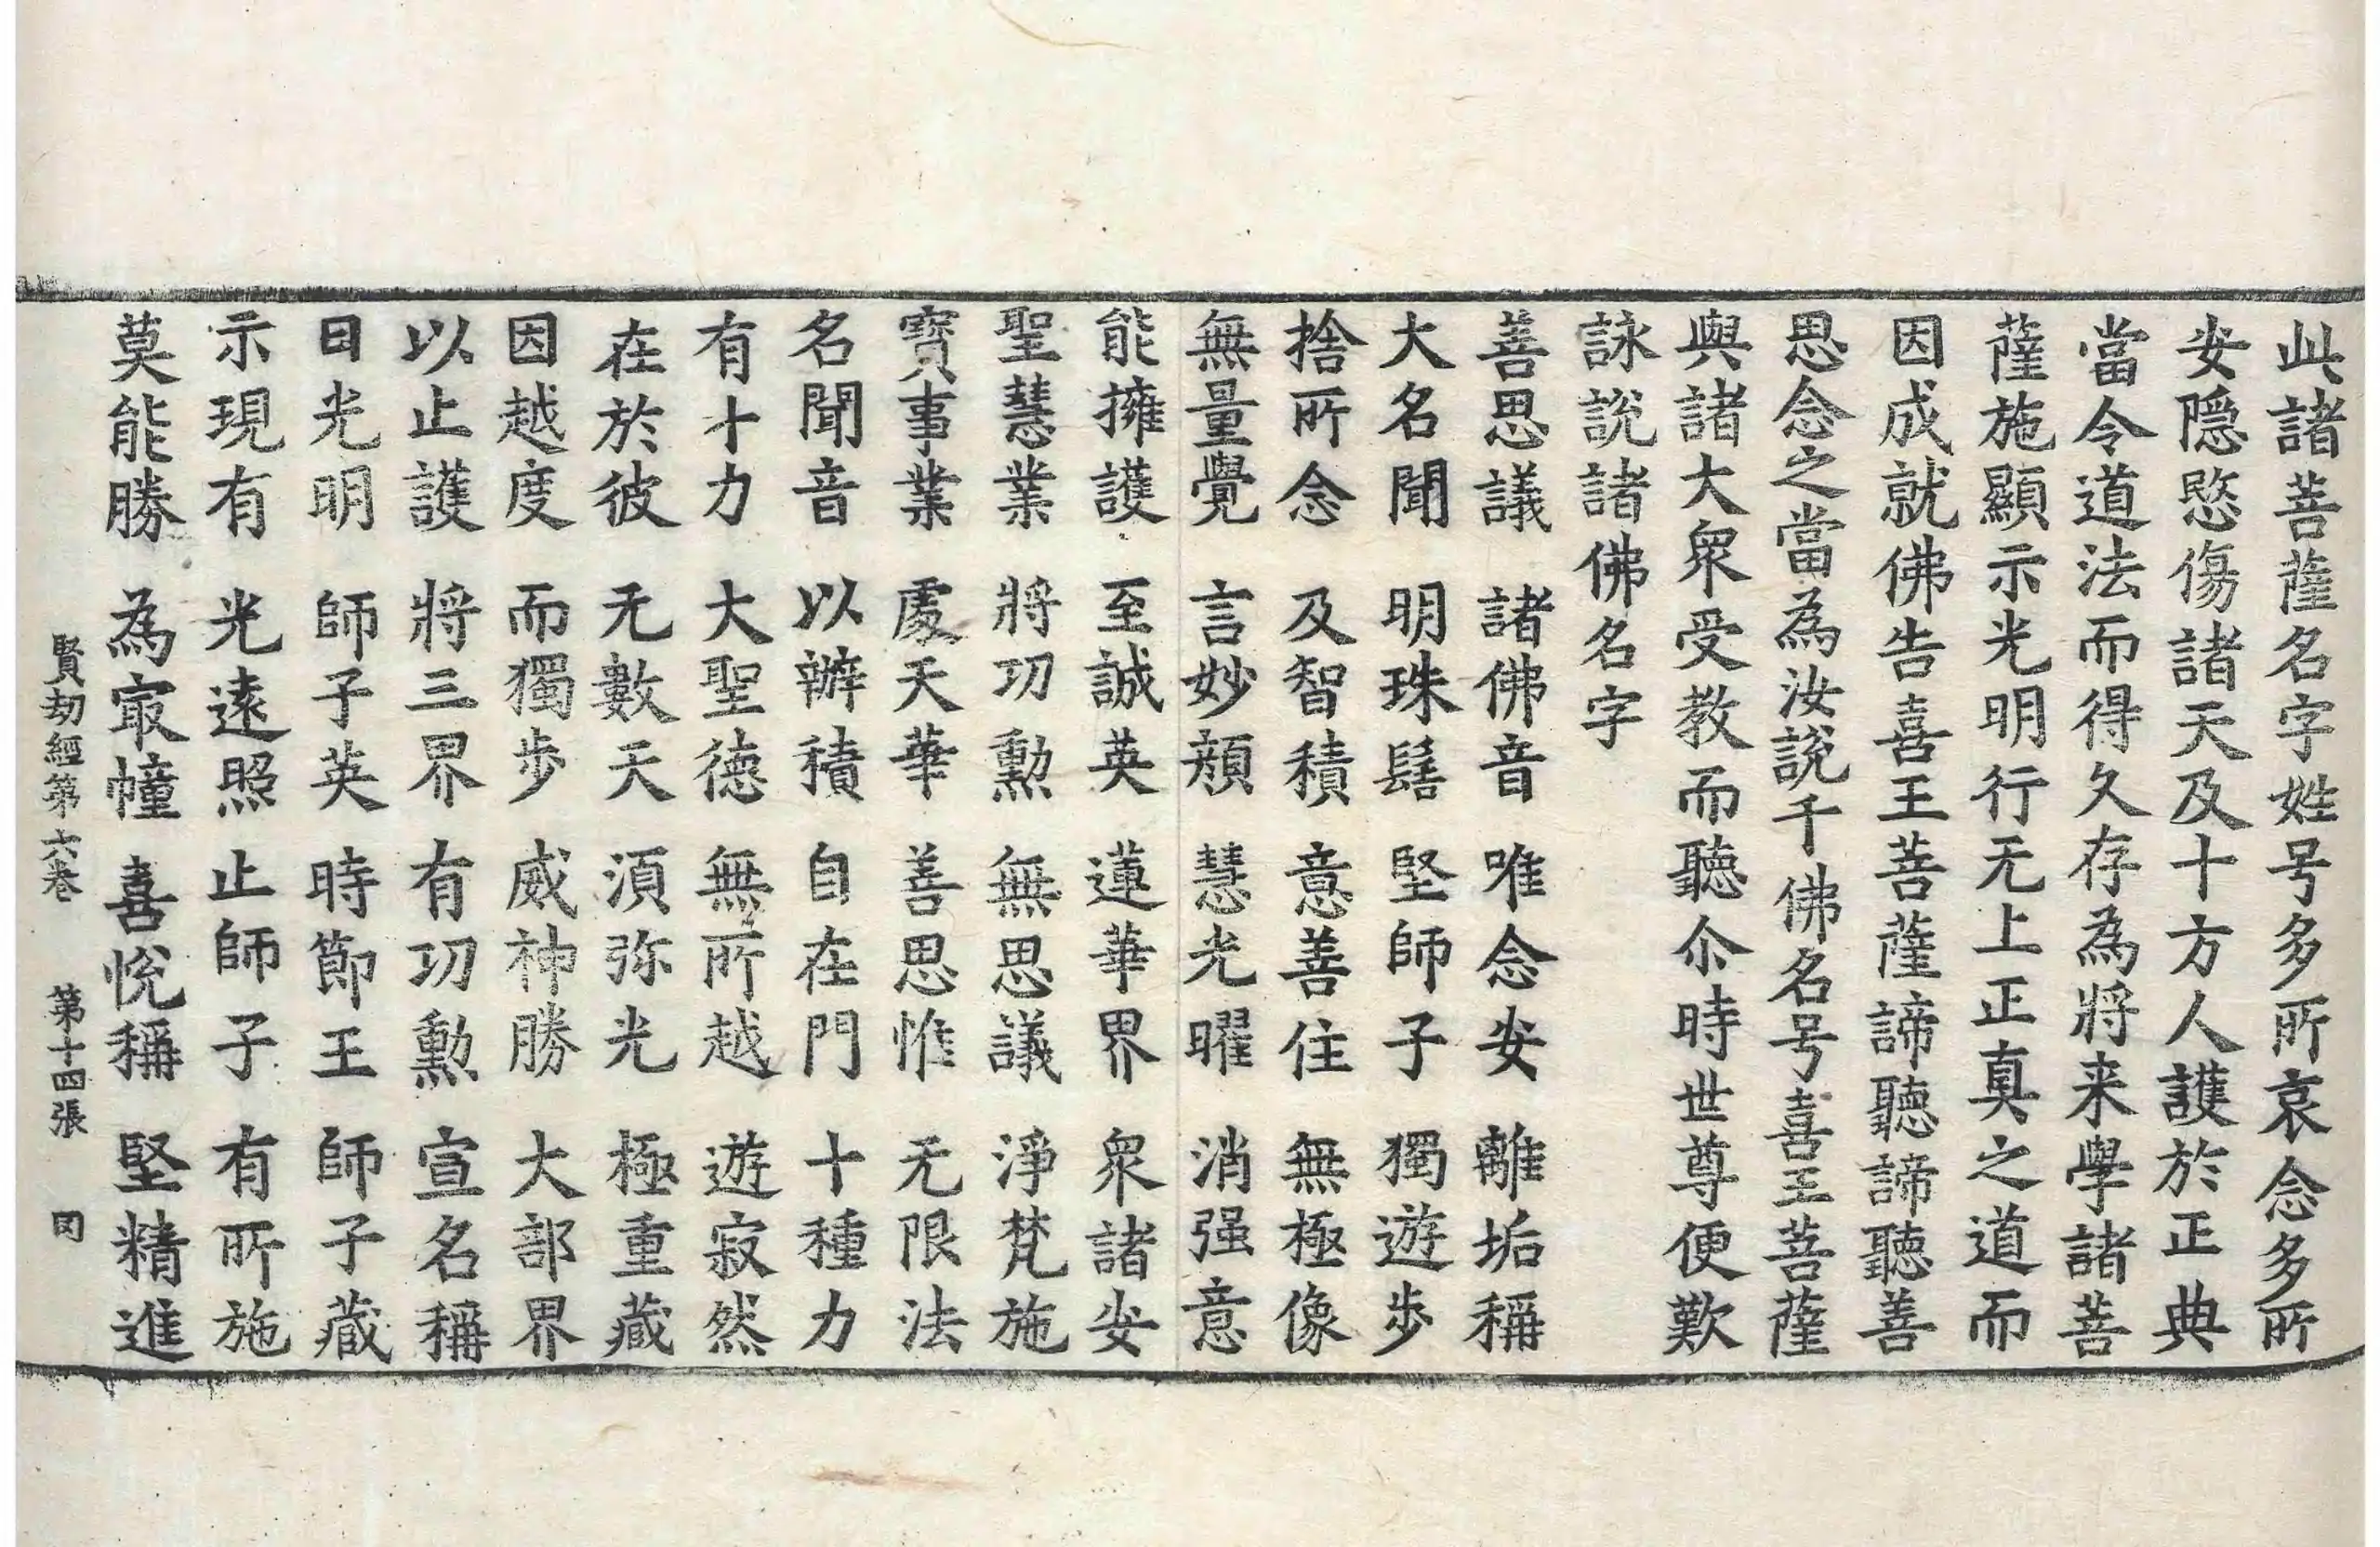 此諸菩薩名字姓号多所哀念多所
安隱愍傷諸天及十方人護於正典
當令道法而得久存為將来學諸菩
薩施顯示光明行无上正真之道而
因成就佛告喜王菩薩諦聽諦聽善
思念之當為汝說千佛名号喜王菩薩
與諸大衆受教而聽尒時世尊便歎
詠說諸佛名字
善思議　諸佛音　唯念安　離垢稱
大名聞　明珠髻　堅師子　獨遊步
捨所念　及智積　意善住　無極像
無量覺　言妙顔　慧光曜　消强意
能擁護　至誠英　蓮華界　衆諸安
聖慧業　將功勳　無思議　淨梵施
寶事業　處天華　善思惟　无限法
名聞音　以辦積　自在門　十種力
有十力　大聖德　無所越　遊寂然
在於彼　无數天　須弥光　極重藏
因越度　而獨步　威神勝　大部界
以止護　將三界　有功勳　宣名稱
日光明　師子英　時節王　師子藏
示現有　光遠照　止師子　有所施
莫能勝　為㝡幢　喜悅稱　堅精進
賢劫經第六巻　第十四張